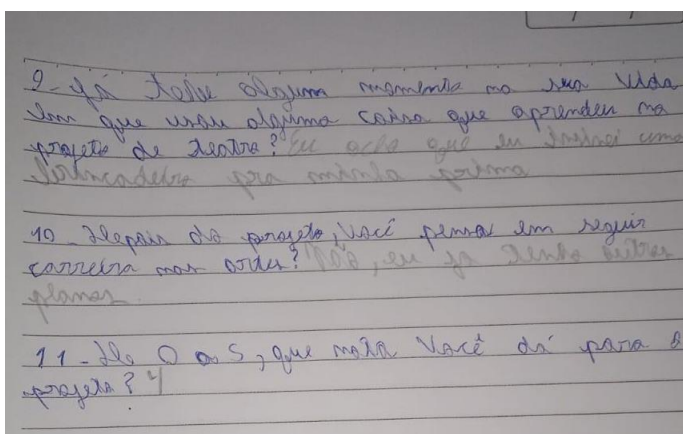 9- Já teve algum momento na sua vida
em que usou alguma coisa que aprendeu no
projeto de teatro? Eu acho que eu ensinei uma
brincadeira pra minha prima
10- Depois do projeto, você pensa em seguir
carreira nas artes? Não, eu já tenho outros
planos.
11- De 0 a 5, que nota você dá para o
projeto? 4